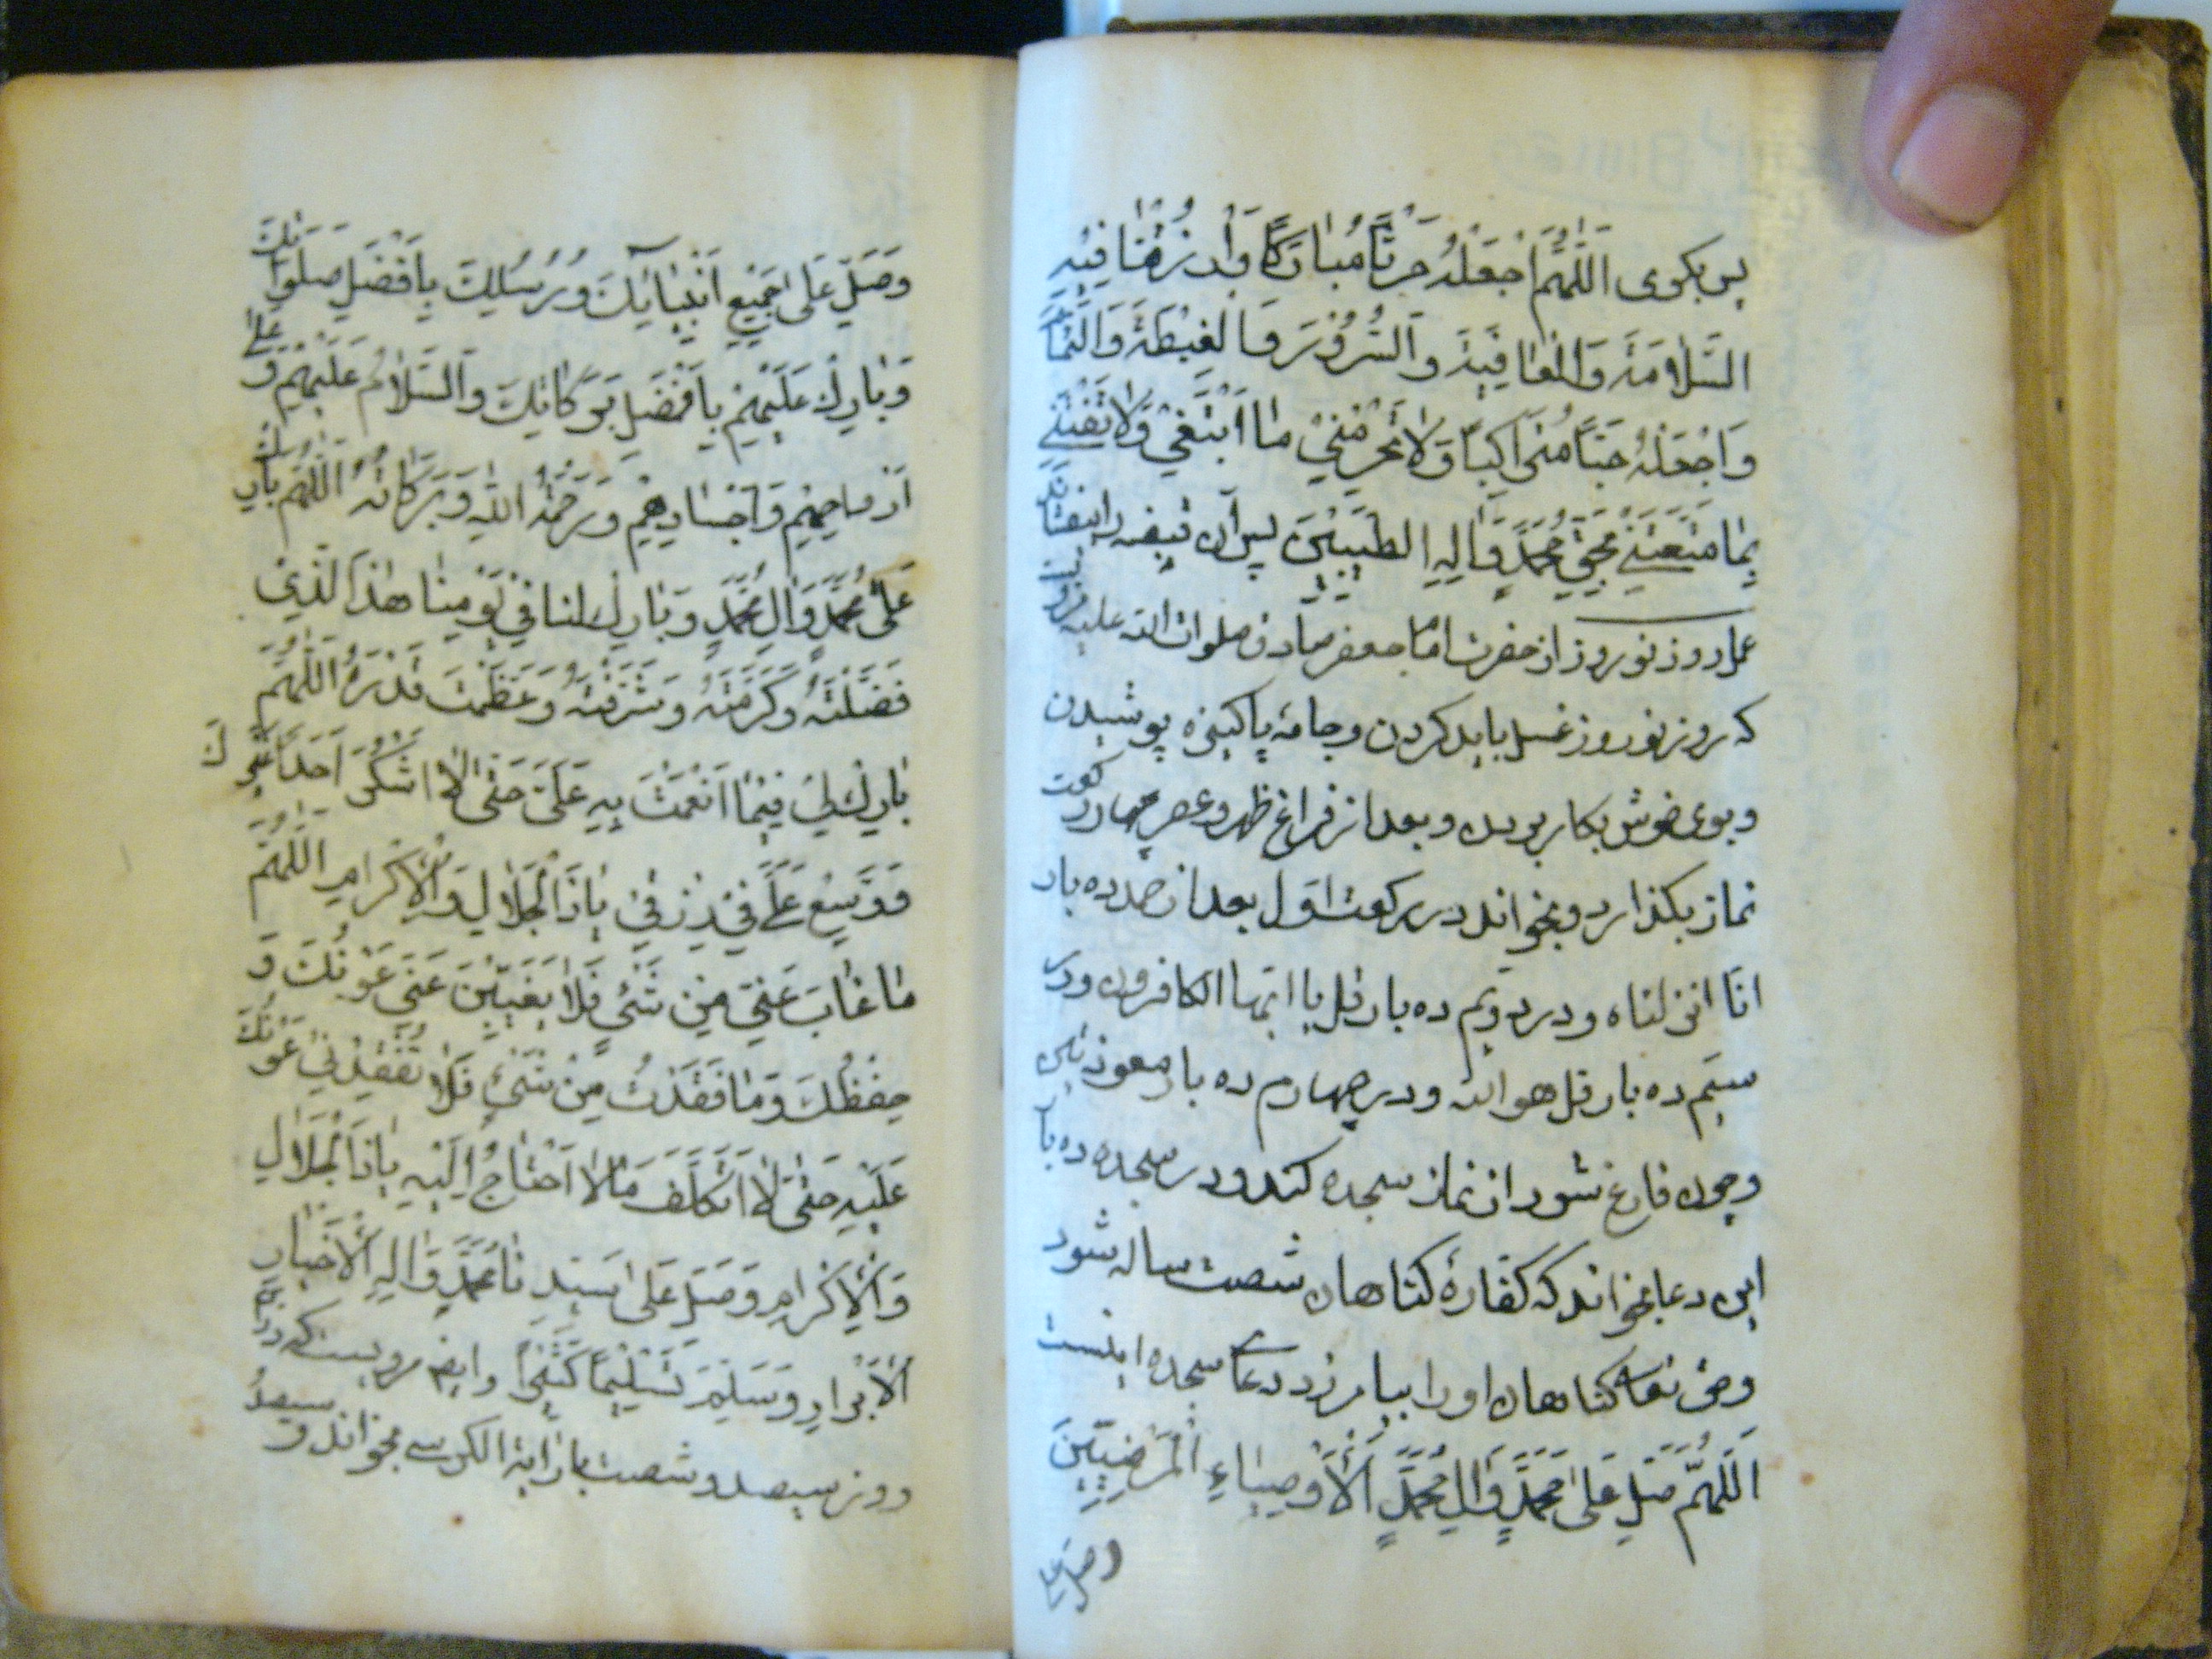 پس بکوی اَللّٰهُمَّ اجْعَلْهُ حَرْثًا مُبٰارَكًا وَارْزُقْنٰا فِیْهِ
السَّلٰامَةَ وَالْعٰافِیَةَ وَالسُّرُوْرَ وَالْغِبْطَةَ وَالتَّمٰامَ
وَاجْعَلْهُ حَبًّا مُتَرٰاكِبًا وَلٰا تَحْرِمْنِیْ مٰا اَبْتَغِیْ وَلٰا تَفْتِنِّیْ
بِمٰا مَتَّعْتَنِیْ بِحَقِّ مُحَمَّدٍ وَاٰلِهِ الطَّیِّبِیْنَ پس آن قبضه را بیفشاند
عمل روز نوروز از حضرت امام جعفر صادق صلوات الله علیه
که روز نوروز غسل باید کردن و جامۀ پاکیزه پوشیدن
و بوی خوش بکار بردن و بعد از فراغ ظهر و عصر چهار رکعت
نماز بکذارد و بخواند در رکعت اول بعد از حمد ده بار
انا انزلناه و در دویم ده بار قل یا ایها الکافرون و در
سیّم ده بار قل هو الله و در چهارم ده بار معوذتین
و چون فارغ شود از نماز سجده کند و در سجده ده بار
این دعا بخواند که کفارۀ کناهان شصت ساله شود
و حق تعالی کناهان او را بیامرزد دعای سجده اینست
اَللّٰهُمَّ صَلِّ عَلٰی مُحَمَّدٍ وَاٰلِ مُحَمَّدٍ الْاَوْصِیٰاءِ الْمَرْضِیِّیْنَ
وصل علی
وَصَلِّ عَلٰی جَمِیْعِ اَنْبِیٰائِكَ وَرُسُلِكَ بِاَفْضَلِ صَلَوٰاتِكَ
وَبٰارِكْ عَلَیْهِمْ بِاَفْضَلِ بَرَكٰاتِكَ وَالسَّلٰامُ عَلَیْهِمْ وَ عَلٰی
اَرْوٰاحِهِمْ وَاَجْسٰادِهِمْ وَرَحْمَةُ اللّٰهِ وَبَرَكٰاتُهُ اَللّٰهُمَّ بٰارِكْ
عَلٰی مُحَمَّدٍ وَاٰلِ مُحَمَّدٍ وَبٰارِكْ لَنٰا فِیْ یَوْمِنٰا هٰذَا الَّذِیْ
فَضَّلْتَهُ وَكَرَّمْتَهُ وَشَرَّفْتَهُ وَعَظَّمْتَ قَدْرَهُ اَللّٰهُمَّ
بٰارِكْ لِیْ فِیْمٰا اَنْعَمْتَ بِهِ عَلَیَّ حَتّٰی لٰا اَشْكُرَ اَحَدًا غَیْرَكَ
وَوَسِّعْ عَلَیَّ فِیْ رِزْقِیْ یٰا ذَا الْجَلٰالِ وَالْاِكْرٰامِ اَللّٰهُمَّ
مٰا غٰابَ عَنِّیْ مِنْ شَیْءٍ فَلٰا یَغِیْبَنَّ عَنِّیْ عَوْنُكَ وَ
حِفْظُكَ وَمٰا فَقَدْتُ مِنْ شَیْءٍ فَلٰا تُفْقِدْنِیْ عَوْنَكَ
عَلَیْهِ حَتّٰی لٰا اَتَكَلَّفَ مٰا لٰا اَحْتٰاجُ اِلَیْهِ یٰا ذَا الْجَلٰالِ
وَالْاِكْرٰامِ وَصَلِّ عَلٰی سَیِّدِنٰا مُحَمَّدٍ وَاٰلِهِ الْاَخْیٰارِ
الْاَبْرٰارِ وَسَلِّمْ تَسْلِیْمًا كَثِیْرًا وایضا مرویست که در
روز سیصد و شصت بار آیة الکرسی بخواند و سیصد